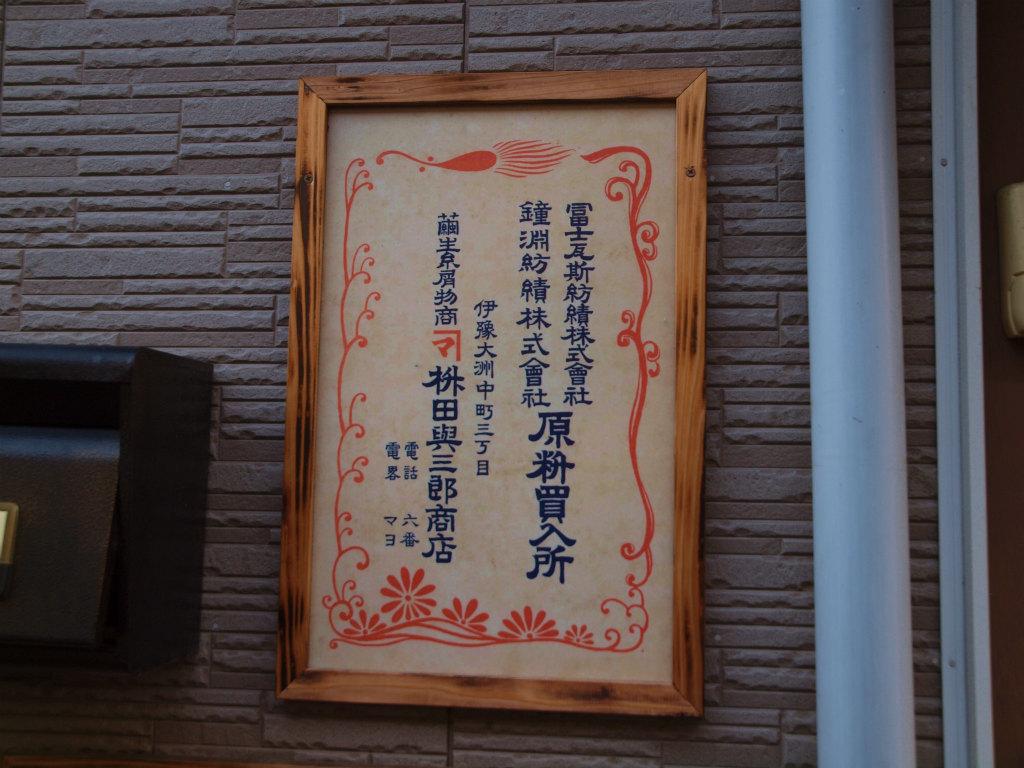 冨士瓦斯紡績株式會社
鐘淵紡績株式會社
原料買入所
伊豫大洲中町三丁目
繭生糸屑物商
マ
桝田與三郎商店
電話 六番
電畧 マヨ